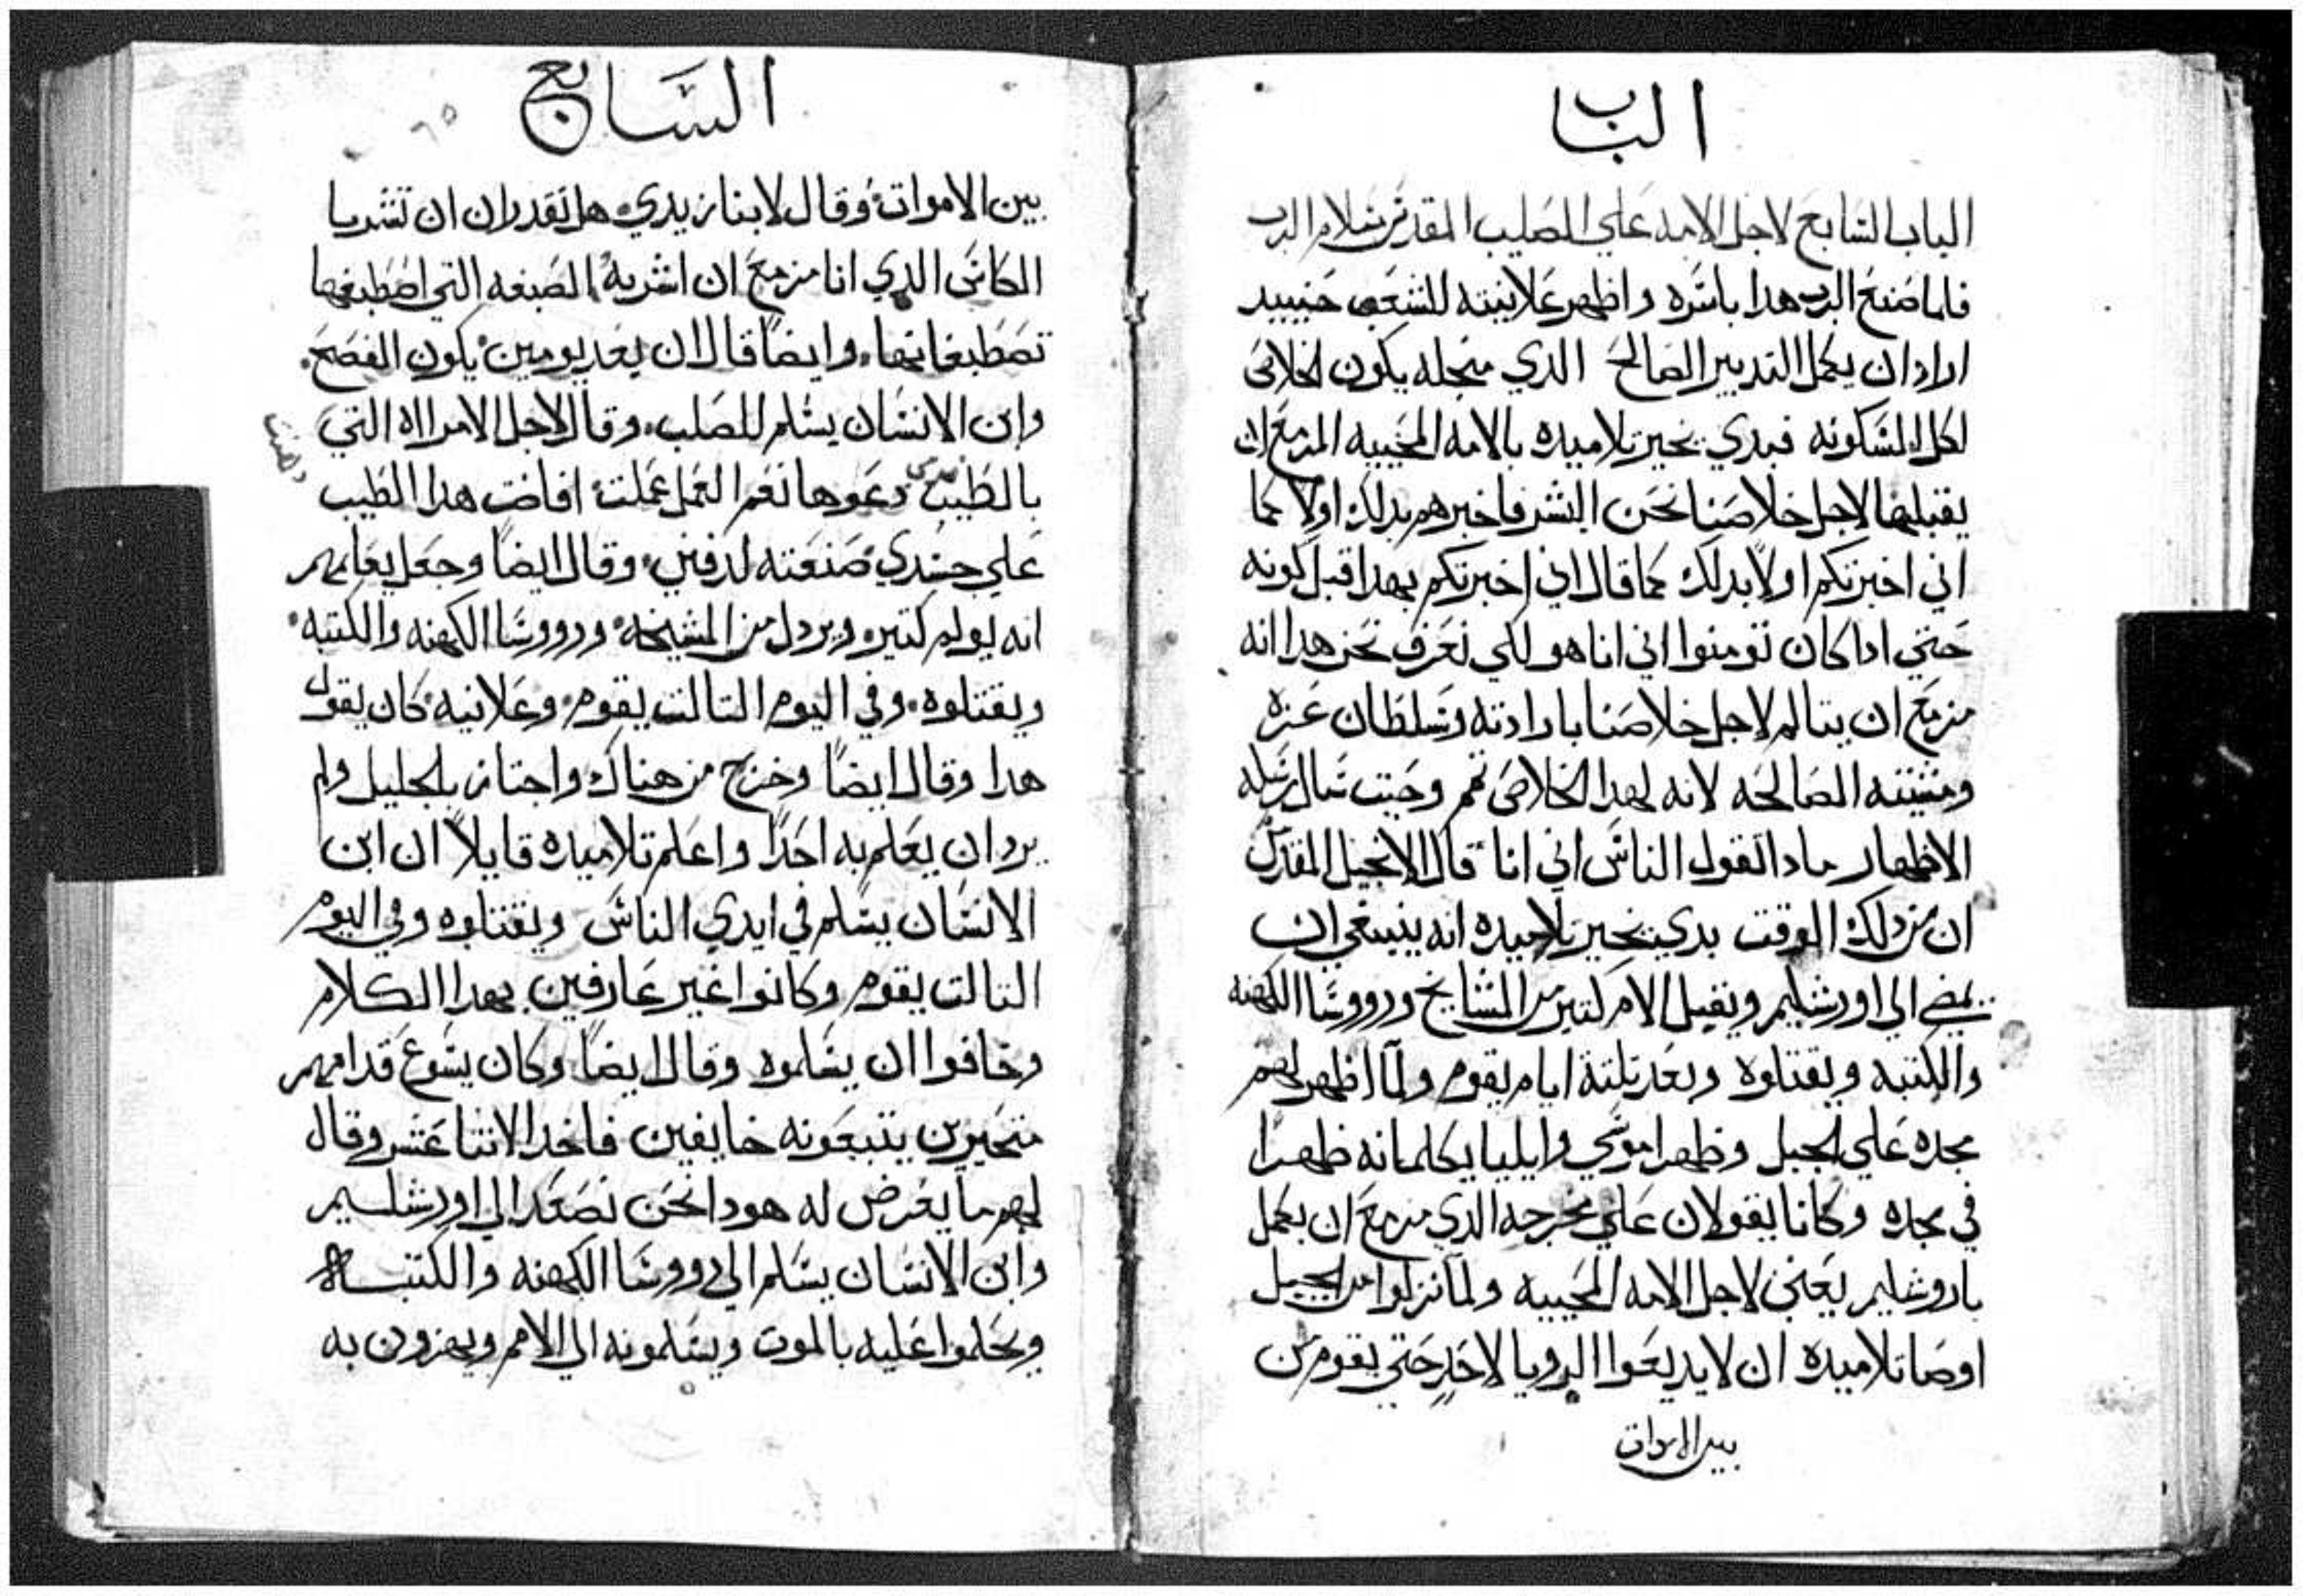 الباب
الباب السابع لاجل الامه علي الصليب المقدس بسلام الرب
فلما صنع الرب هدا باسره واظهر علانيته للشعب حينييد
اراد ان يكمل التدبير الصالح الدي منجله يكون الخلاص
لكل المسكونه فبدي يخبر تلاميده بالامه المحييه المزمع ان
يقبلها لاجل خلاصنا نحن البشر فاخبرهم بدلك اولا كما
اني اخبرتكم اولاً بدلك كما قال اني اخبرتكم بهدا قبل كونه
حتي ادا كان تومنوا اني انا هو لكي نعرف نحن هدا انه
مزمع ان يتالم لاجل خلاصنا بارادته وسلطان عزه
ومشيته الصالحه لانه لهدا الخلاص تم وحيت سال رسله
الاطهار مادا تقول الناس اني انا قال الانجيل المقدس
ان من دلك الوقت بدي يخبر تلاميده انه ينبغي ان
يمضي الي اورشليم ويقبل الام كتير من المشايخ ورووسا الكهنه
والكتبه ويقتلوه وبعد تلتة ايام يقوم ولما اظهر لهم
مجده علي الجبل وظهرا موسي وايليا يكلمانه ظهرا
في مجده وكانا يقولان علي مخرجه الدي مزمع ان يكمل
باروشليم يعني لاجل الامه المحييه ولما نزلوا من الجبل
اوصا تلاميده ان لا يديعوا الرويا لاحد حتي يقوم من
بين الاموات
السابع
٦٥
بين الاموات وقال لابنا زبدي هل تقدران ان تشربا
الكاس الدي انا مزمع ان اشربه الصبغه التي اصطبغها
تصطبغانها وايضاً قال ان بعد يومين يكون الفصح
وابن الانسان يسلم للصلب وقال لاجل الامراه التي
دهنت
بالطيب دعوها نعم العمل عملت افاضت هدا الطيب
علي جسدي صنعته لدفني وقال ايضاً وجعل يعلمهم
انه يولم كتير ويردل من المشيخه ورووسا الكهنه والكتبه
ويقتلوه وفي اليوم التالت يقوم وعلانيه كان يقول
هدا وقال ايضاً وخرج من هناك واجتاز بالجليل ولم
يرد ان يعلم به احداً واعلم تلاميده قايلاً ان ابن
الانسان يسلم في ايدي الناس ويقتلوه وفي اليوم
التالت يقوم وكانوا غير عارفين بهدا الكلام
وخافوا ان يسلموه وقال ايضاً وكان يسوع قدامهم
متحيرين يتبعونه خايفين فاخد الاتنا عشر وقال
لهم ما يعرض له هودا نحن نصعد الي اورشليم
وابن الانسان يسلم الي رووسا الكهنه والكتبه
ويحكموا عليه بالموت ويسلمونه الي الامم ويهزون به